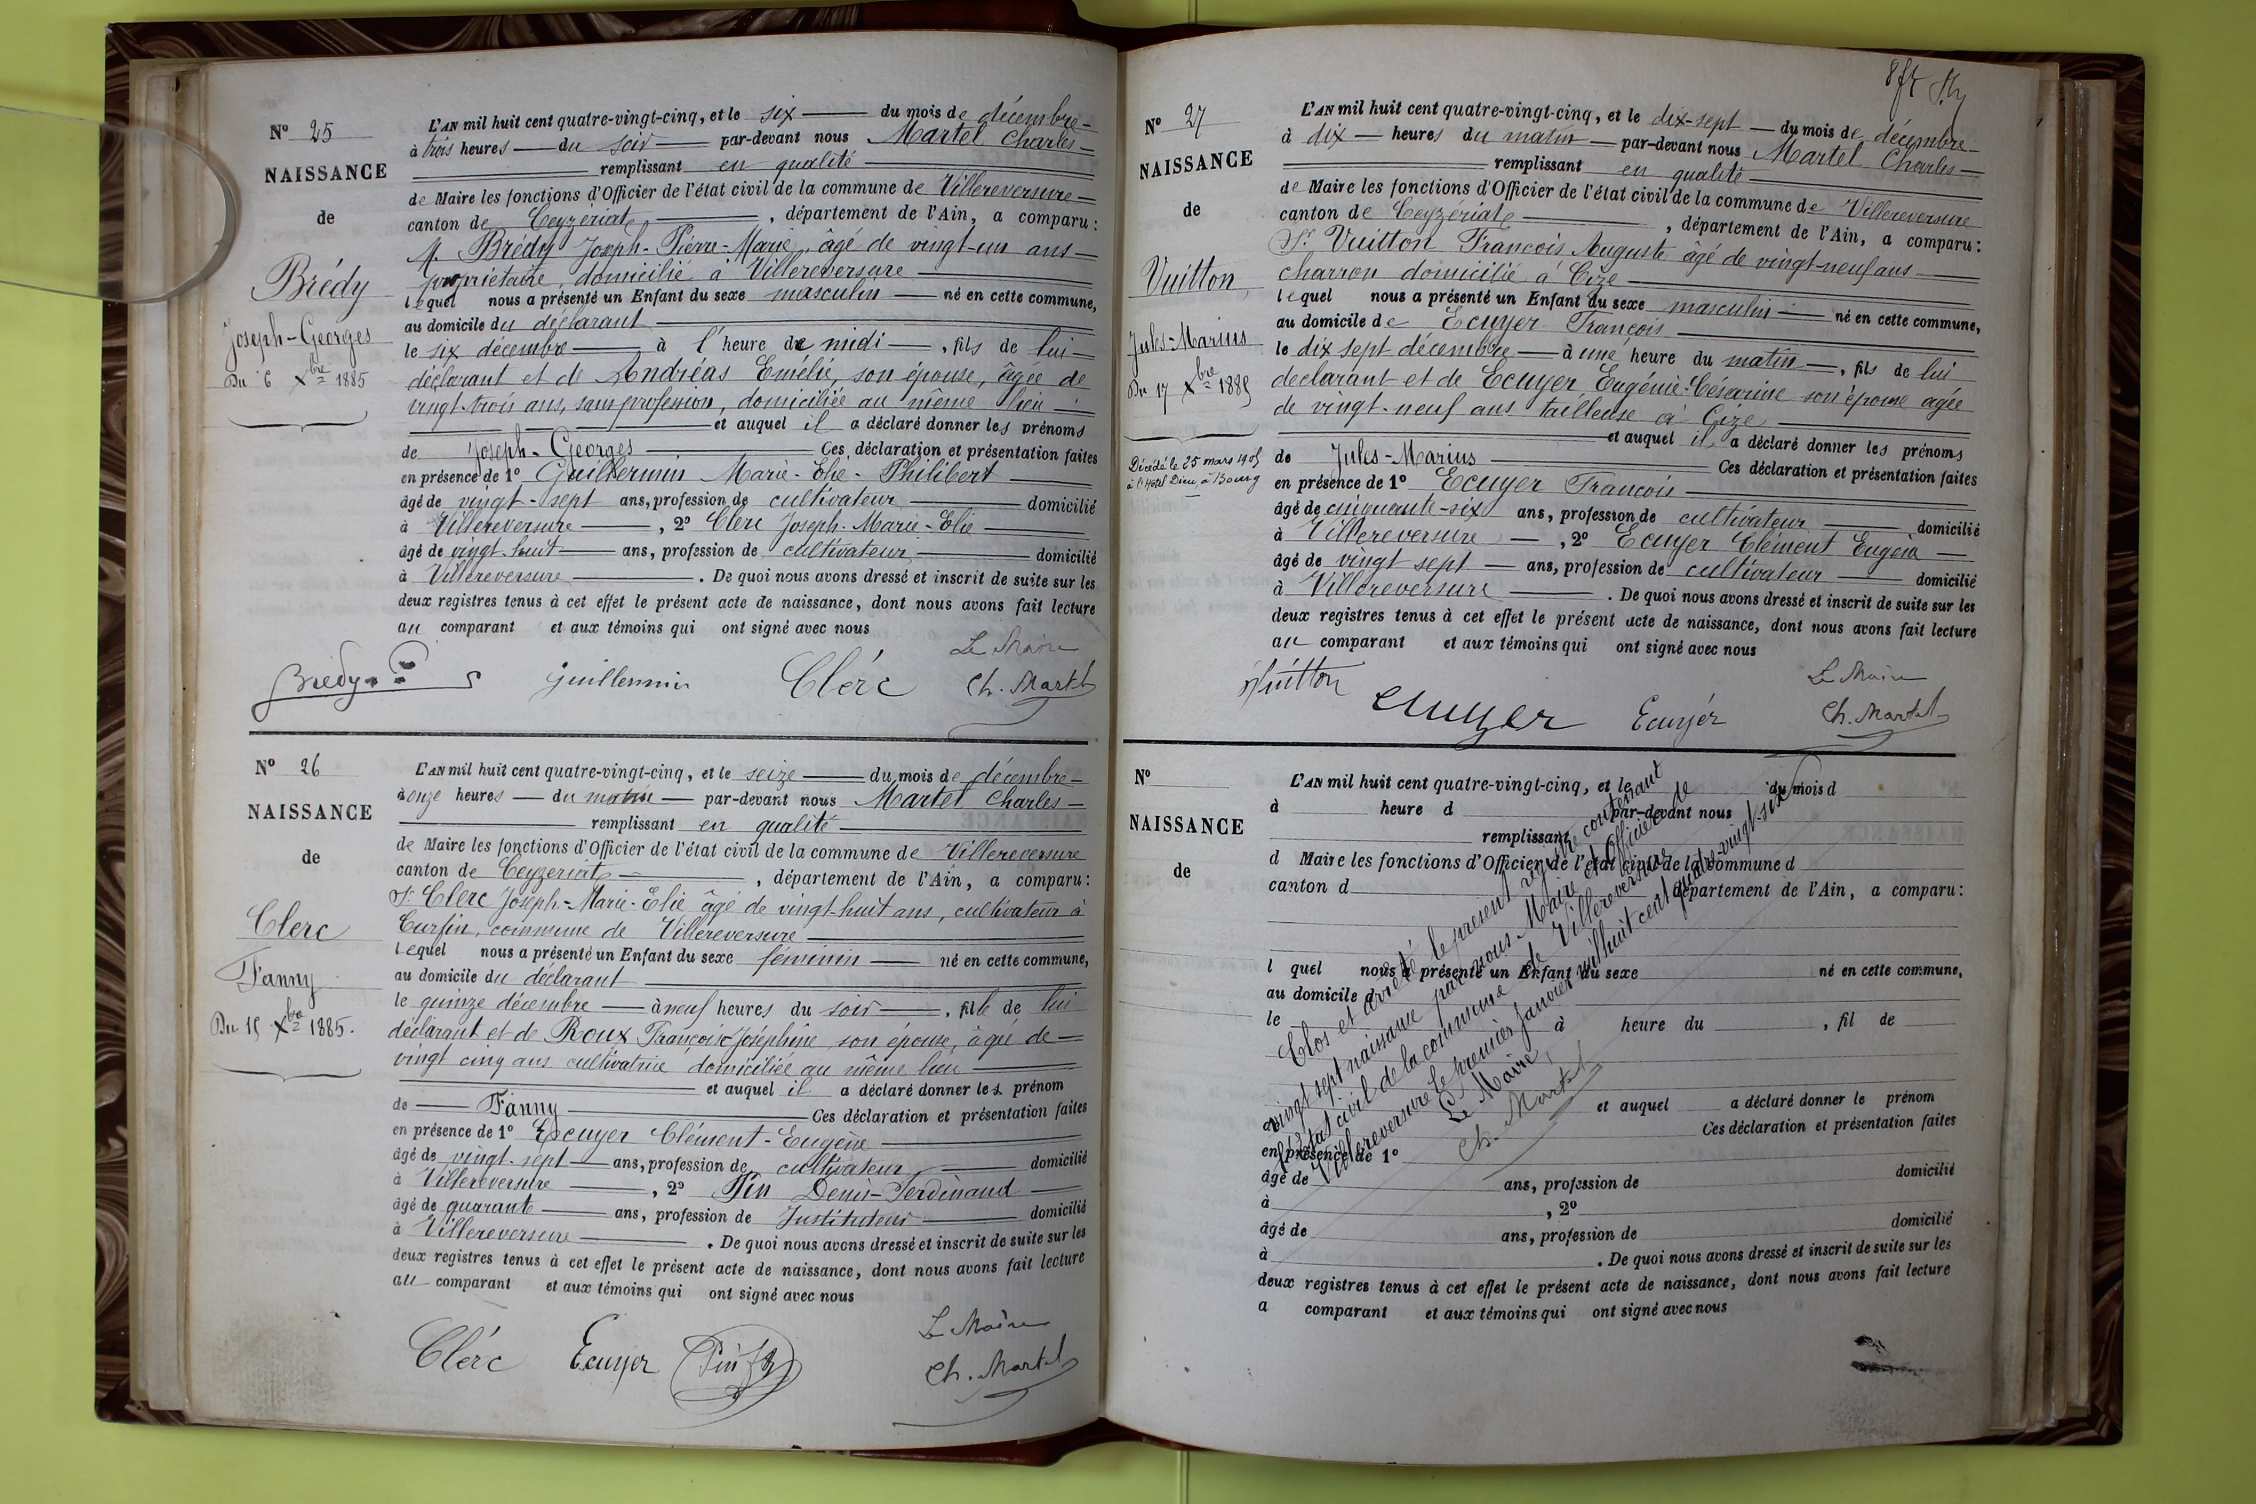 N° 25
NAISSANCE
de
Brédy
Joseph-Georges
Du 6 Xbre 1885
L'AN mil huit cent quatre-vingt-cinq, et le six du mois de décembre
à trois heures du soir par-devant nous Martel Charles
remplissant en qualité
de Maire les fonctions d'Officier de l'état civil de la commune de Villereversure
canton de Ceyzériat, département de l'Ain, a comparu :
M. Brédy Joseph-Pierre-Marie, âgé de vingt-un ans
propriétaire, domicilié à Villereversure
lequel nous a présenté un Enfant du sexe masculin né en cette commune,
au domicile du déclarant
le six décembre à l'heure de midi, fils de lui
déclarant et de Andréas Emélie, son épouse, âgée de
vingt-trois ans, sans profession, domiciliée au même lieu
et auquel il a déclaré donner les prénoms
de Joseph-Georges Ces déclaration et présentation faites
en présence de 1° Guillermin Marie-Elie-Philibert
âgé de vingt-sept ans, profession de cultivateur domicilié
à Villereversure, 2° Clerc Joseph-Marie-Elie
âgé de vingt-huit ans, profession de cultivateur domicilié
à Villereversure. De quoi nous avons dressé et inscrit de suite sur les
deux registres tenus à cet effet le présent acte de naissance, dont nous avons fait lecture
au comparant et aux témoins qui ont signé avec nous
Le Maire
Brédy Guillermin Clérc Ch. Martel
N° 26
NAISSANCE
de
Clerc
Fanny
Du 15 Xbre 1885.
L'AN mil huit cent quatre-vingt-cinq, et le seize du mois de décembre
à onze heures du matin par-devant nous Martel Charles
remplissant en qualité
de Maire les fonctions d'Officier de l'état civil de la commune de Villereversure
canton de Ceyzériat, département de l'Ain, a comparu :
Sr Clerc Joseph-Marie-Elie âgé de vingt-huit ans, cultivateur à
Curfin, commune de Villereversure
lequel nous a présenté un Enfant du sexe féminin né en cette commune,
au domicile du déclarant
le quinze décembre à neuf heures du soir, fille de lui
déclarant et de Roux Françoise Joséphine son épouse, âgée de
vingt cinq ans cultivatrice domiciliée au même lieu
et auquel il a déclaré donner les prénom
de Fanny Ces déclaration et présentation faites
en présence de 1° Ecuyer Clément-Eugène
âgé de vingt-sept ans, profession de cultivateur domicilié
à Villereversure, 2° Pin Denis-Ferdinand
âgé de quarante ans, profession de Instituteur domicilié
à Villereversure. De quoi nous avons dressé et inscrit de suite sur les
deux registres tenus à cet effet le présent acte de naissance, dont nous avons fait lecture
au comparant et aux témoins qui ont signé avec nous
Le Maire
Clérc Ecuyer Pin Ch. Martel
N° 27
NAISSANCE
de
Vuitton
Jules-Marius
Du 17 Xbre 1885
Décédé le 25 mars 1905
à l'Hôtel Dieu, à Bourg
L'AN mil huit cent quatre-vingt-cinq, et le dix-sept du mois de décembre
à dix heures du matin par-devant nous Martel Charles
remplissant en qualité
de Maire les fonctions d'Officier de l'état civil de la commune de Villereversure
canton de Ceyzériat, département de l'Ain, a comparu :
Sr Vuitton François Auguste âgé de vingt-neuf ans
charron domicilié à Cize
lequel nous a présenté un Enfant du sexe masculin né en cette commune,
au domicile de Ecuyer François
le dix sept décembre à une heure du matin, fils de lui
declarant et de Ecuyer Eugénie-Césarine son épouse agée
de vingt-neuf ans tailleuse à Cize
et auquel il a déclaré donner les prénoms
de Jules-Marius Ces déclaration et présentation faites
en présence de 1° Ecuyer François
âgé de cinquante-six ans, profession de cultivateur domicilié
à Villereversure, 2° Ecuyer Clément Eugène
âgé de vingt sept ans, profession de cultivateur domicilié
à Villereversure. De quoi nous avons dressé et inscrit de suite sur les
deux registres tenus à cet effet le présent acte de naissance, dont nous avons fait lecture
au comparant et aux témoins qui ont signé avec nous
Le Maire
Vuitton Ecuyer Ecuyér Ch. Martel
N°
NAISSANCE
de
L'AN mil huit cent quatre-vingt-cinq, et le du mois d
à heure d par-devant nous
remplissant
d Maire les fonctions d'Officier de l'état civil de la commune d
canton d département de l'Ain, a comparu :
l quel nous a présenté un Enfant du sexe né en cette commune,
au domicile d
le à heure du , fil de
et auquel a déclaré donner le prénom
Ces déclaration et présentation faites
en présence de 1°
âgé de ans, profession de domicilié
à , 2°
âgé de ans, profession de domicilié
à . De quoi nous avons dressé et inscrit de suite sur les
deux registres tenus à cet effet le présent acte de naissance, dont nous avons fait lecture
a comparant et aux témoins qui ont signé avec nous
Clos et arrêté le présent registre contenant
vingt sept naissance par nous Maire et Officier de
l'Etat civil de la commune de Villereversure
Villereversure le premier Janvier mil huit cent quatre-vingt-six
Le Maire,
Ch. Martel